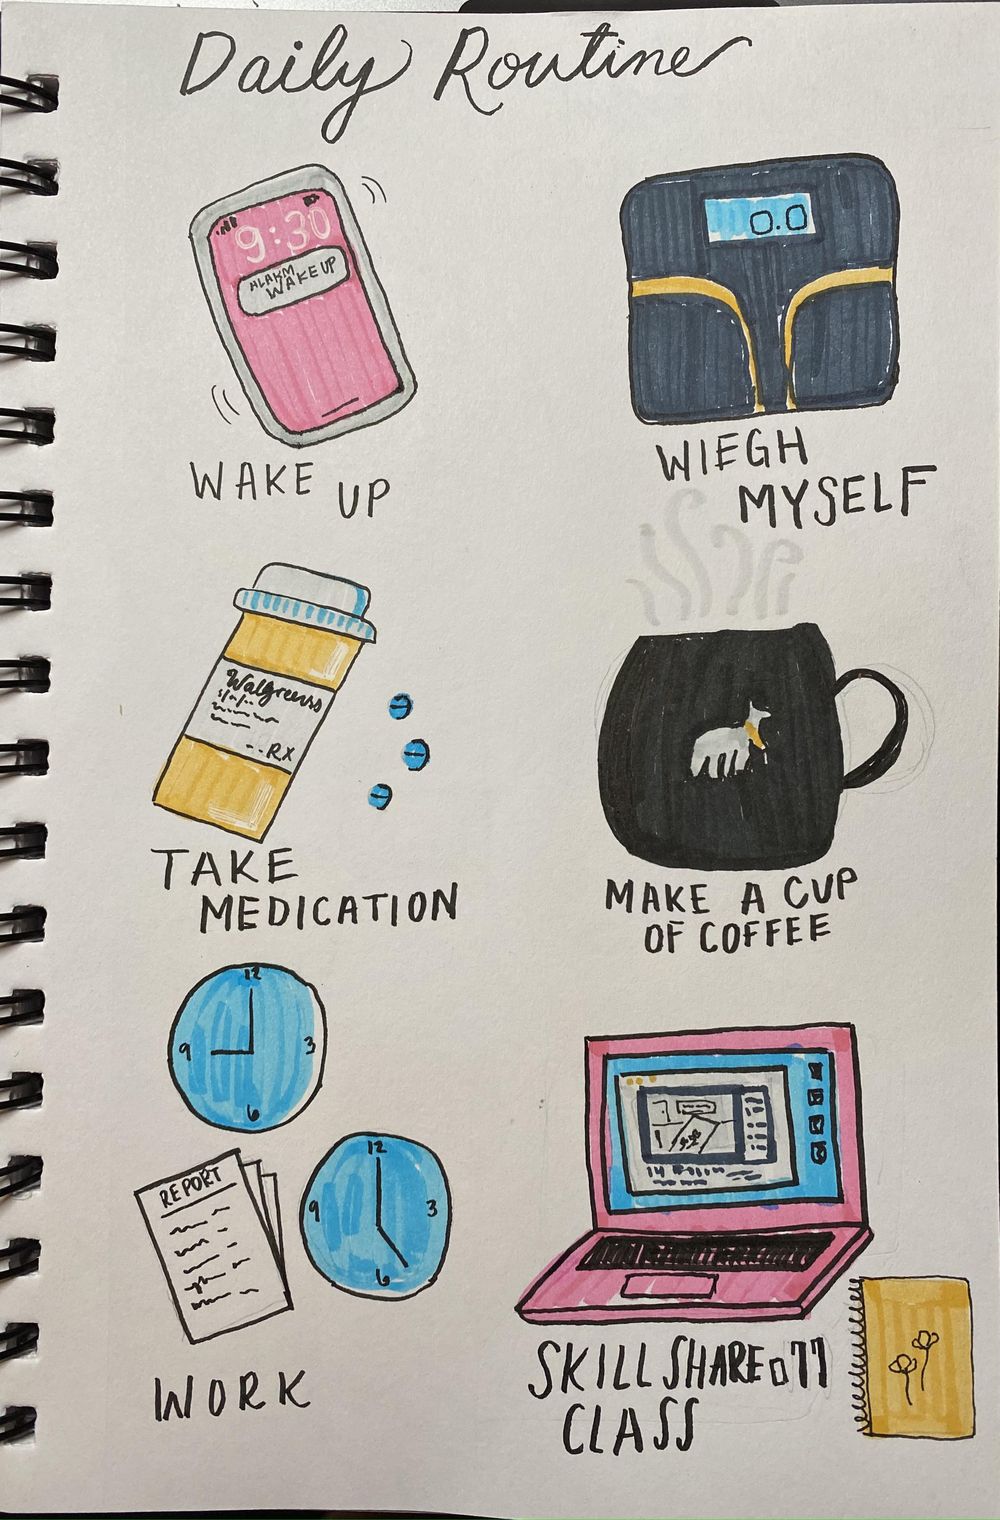 Daily Routine
9:30
ALARM
WAKE UP
WAKE UP
0.0
WIEGH
MYSELF
Walgreens
RX
TAKE
MEDICATION
MAKE A CUP
OF COFFEE
12
9 3
6
REPORT
12
9 3
6
WORK
SKILLSHARE
CLASS